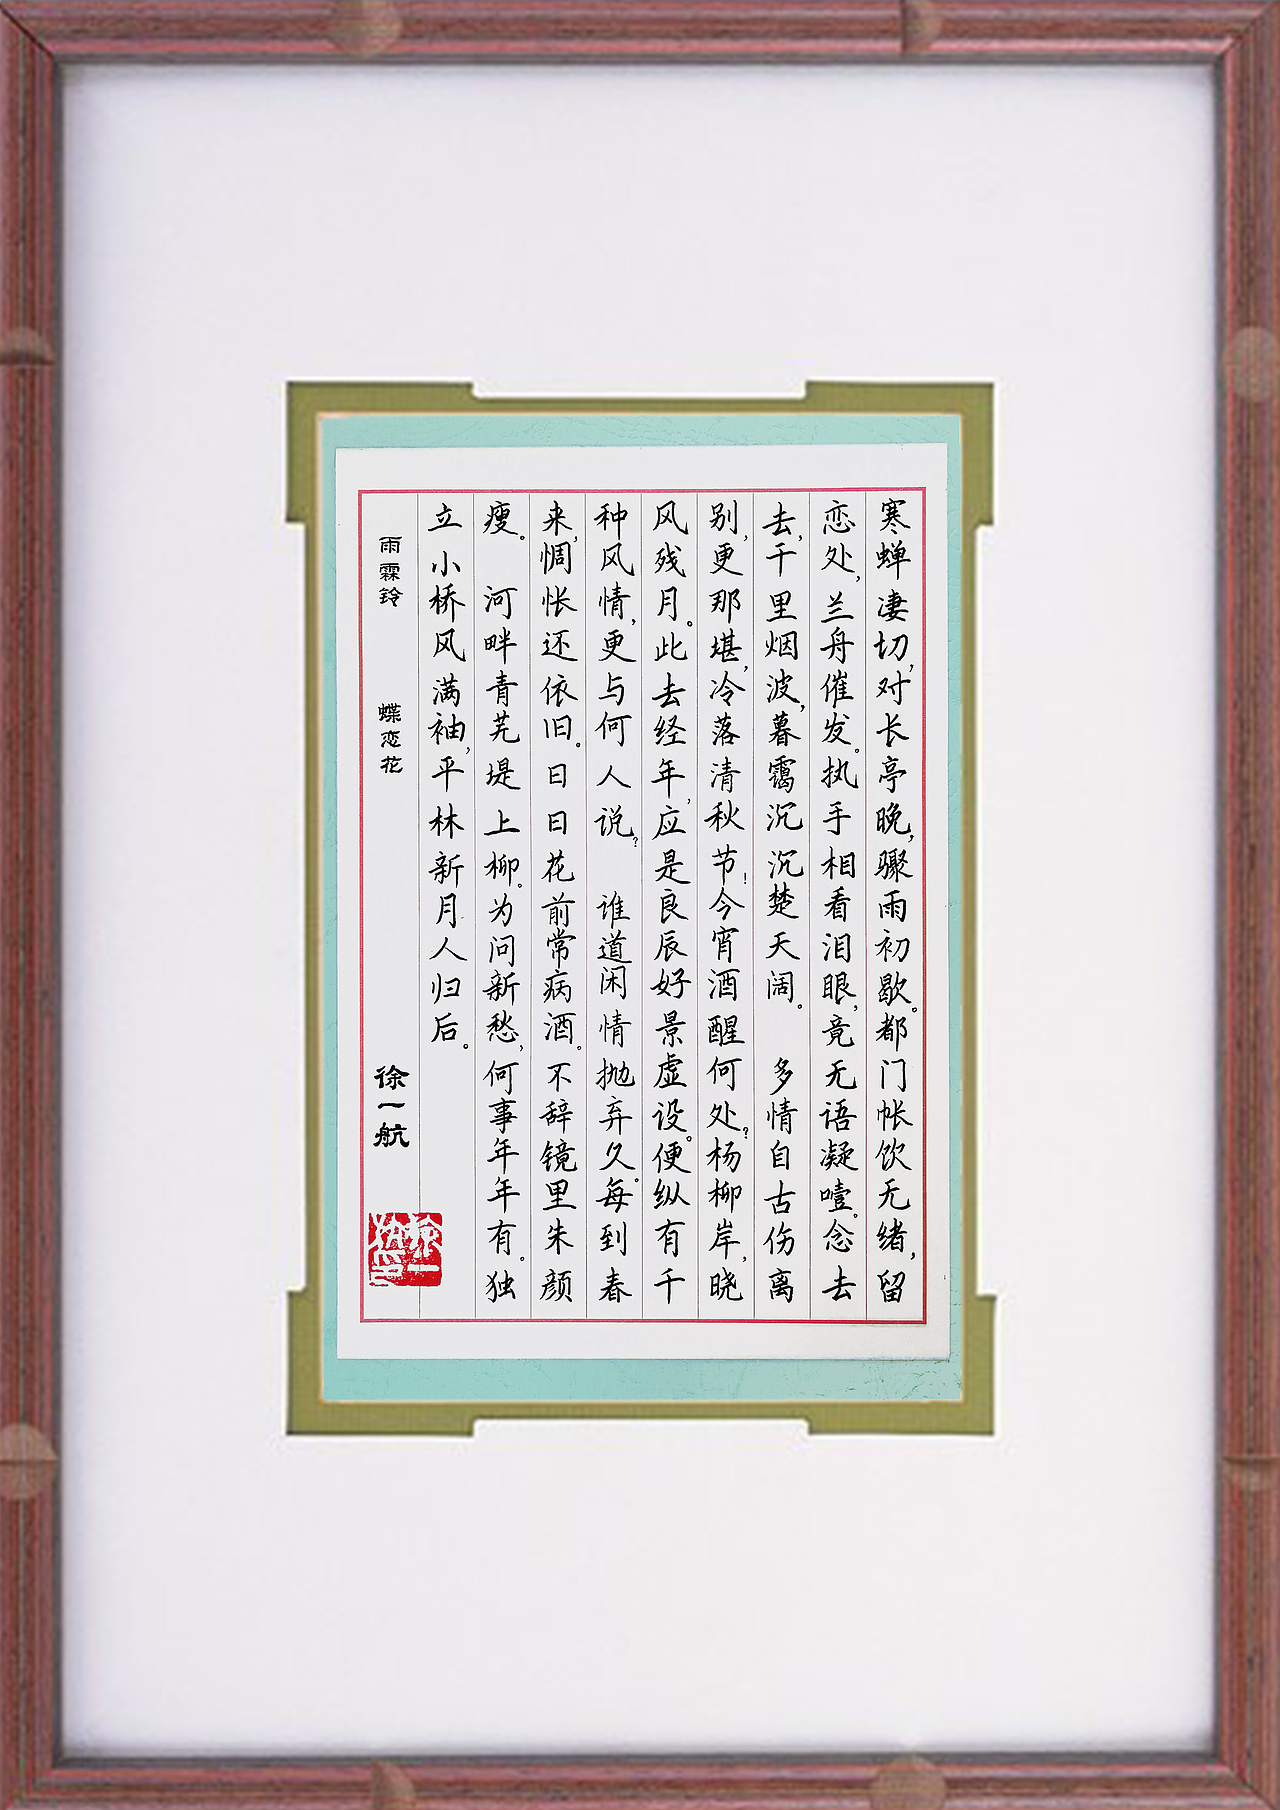 寒蝉凄切,对长亭晚,骤雨初歇。都门帐饮无绪,留
恋处,兰舟催发。执手相看泪眼,竟无语凝噎。念去
去,千里烟波,暮霭沉沉楚天阔。 多情自古伤离
别,更那堪,冷落清秋节!今宵酒醒何处?杨柳岸,晓
风残月。此去经年,应是良辰好景虚设。便纵有千
种风情,更与何人说? 谁道闲情抛弃久。每到春
来,惆怅还依旧。日日花前常病酒。不辞镜里朱颜
瘦。 河畔青芜堤上柳。为问新愁,何事年年有。独
立小桥风满袖,平林新月人归后。
雨霖铃 蝶恋花 徐一航
徐一航印